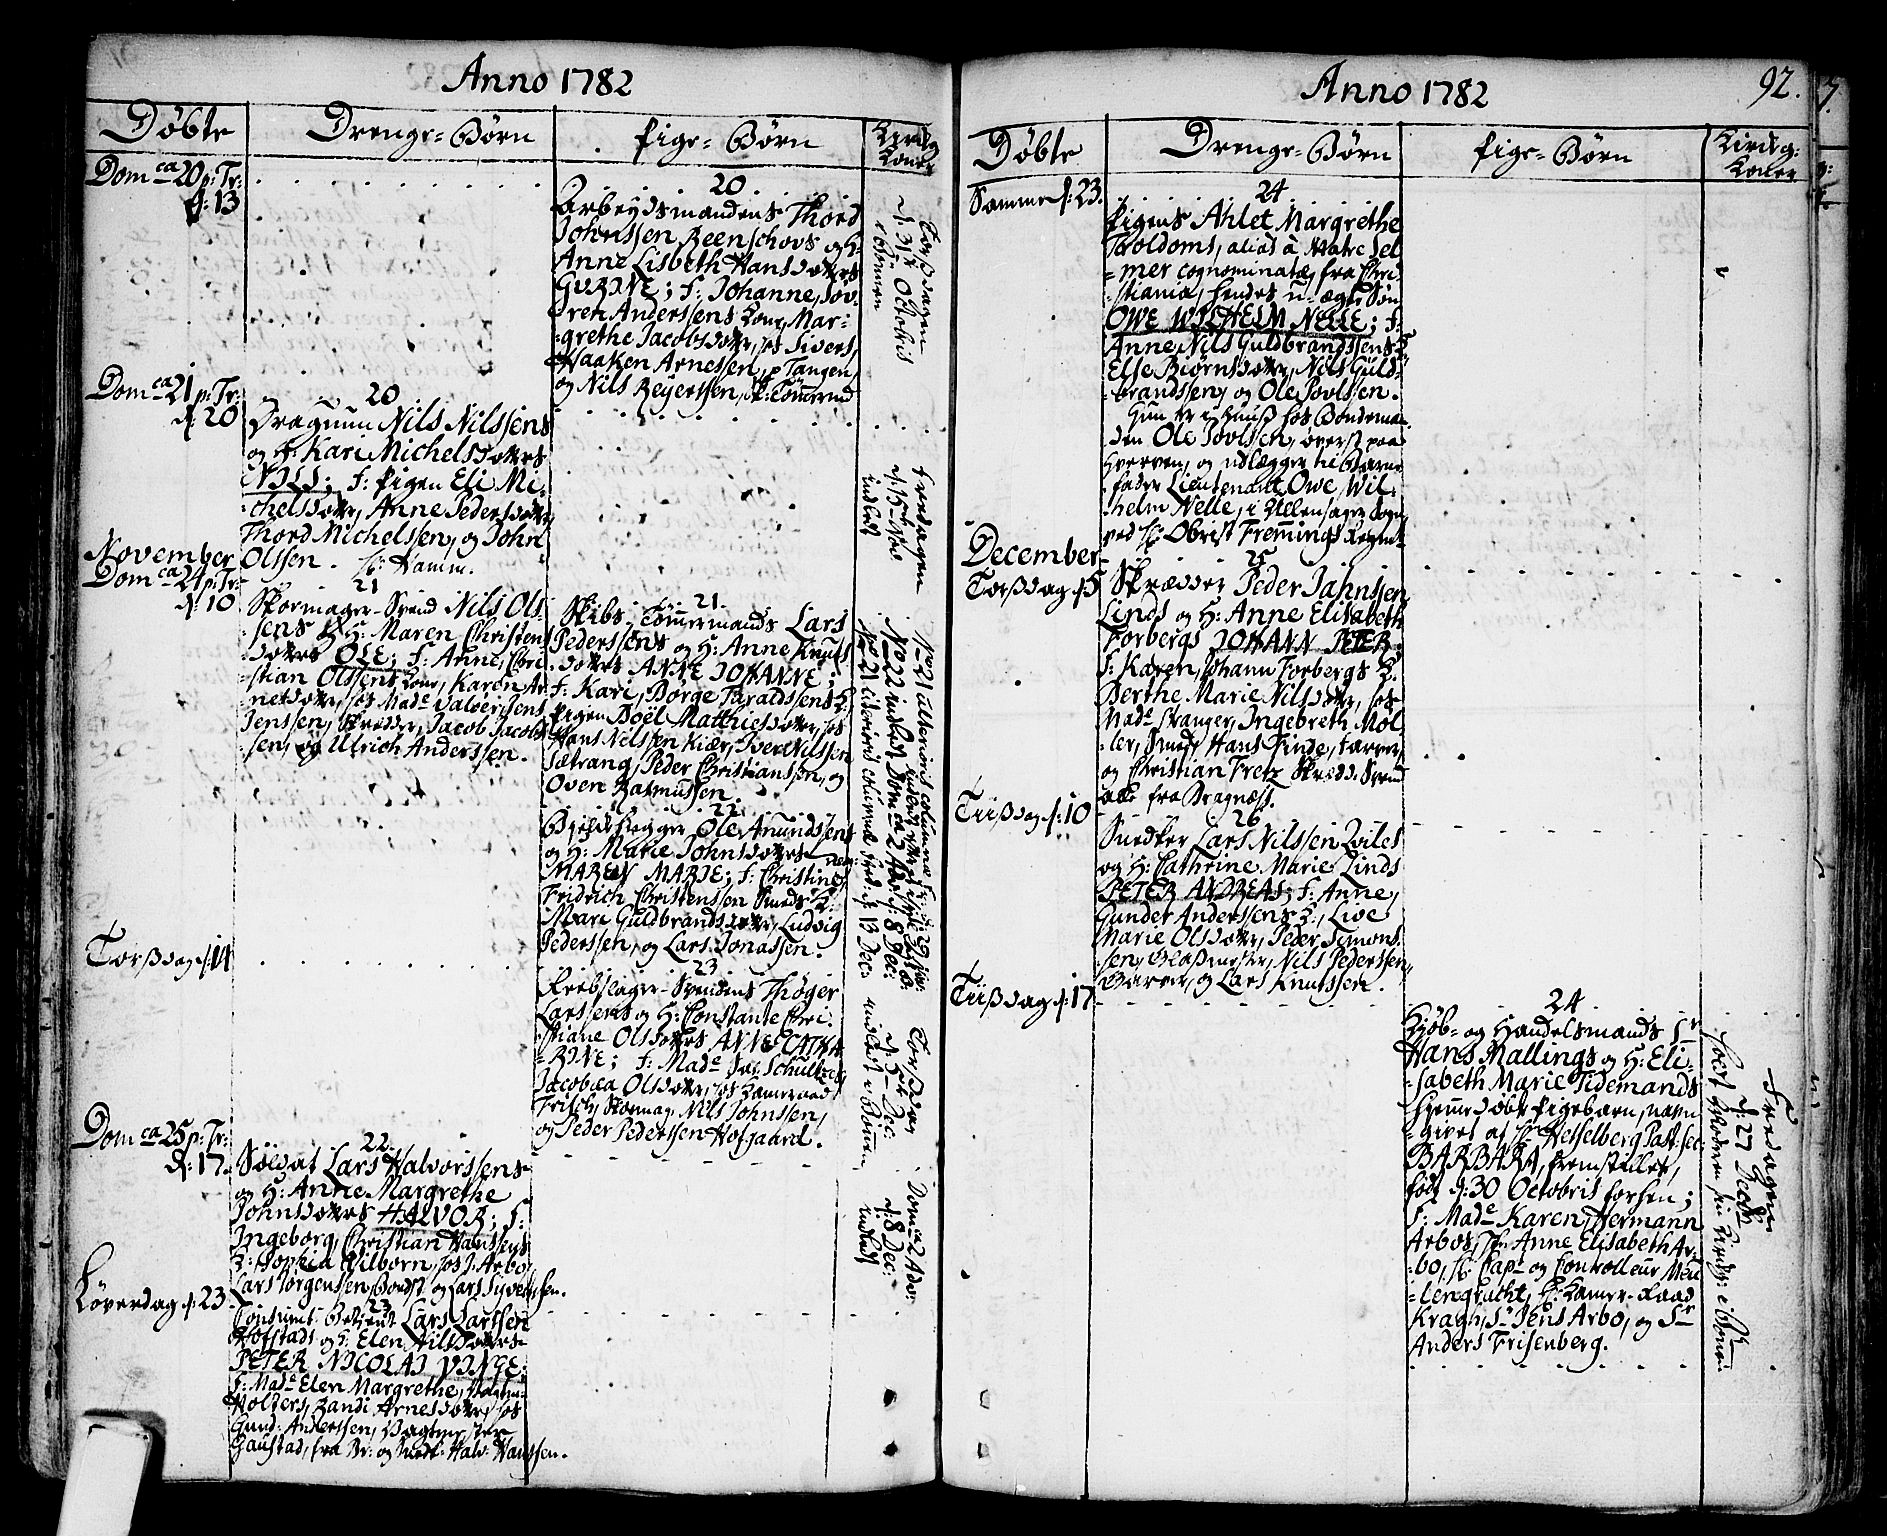 Anno 1782
Døbte
Drenge-Børn
Pige-Børn
Kirkeg:
Koner
Dom ca 20 p: Tr:
d: 13
20.
Arbeydsmandens Thord
Johnssen Reenschovs og H:
Anne Lisbeth Hansdotters
GURINE; F: Johanne, Søv-
ren Anderssens Kone, Mar-
grethe Jacobsdotter, hos Sivers,
Haaken Arnessen, p Tangen,
og Nils Reyerssen,
Torsdagen
d: 31te Octobris
Dom ca 21 p: Tr:
d: 20
20
Dragoun Nils Nilssens
og H: Kari Michelsdotters
NILS; F: Pigen Eli Mi-
chelsdotter, Anne Pedersdotter,
Thord Michelssen, og John
Olssen.
Fredagen
d: 15de Nov:
indledt
November
Dom ca 24 p: Tr:
d: 10
21
Skomager-Svend Nils Ols-
sens og H: Maren Christens-
dotters OLE; F: Anne, Chri-
stian Olssens Kone, Karen Ar-
nesdotter, hos Made Halvorssens
Jenssen, Skredder, Jacob Jacobs-
sen, og Ulrich Anderssen.
21.
Skibs-Tømmermands Lars
Pederssens og H: Anne Knuts-
dotters ANNE JOHANNE;
F: Kari, Børge Taraldssens K:
Pigen Boël Matthiesdotter, hos
Hans Nilssen Kiær, Iver Nilssen
Sætrang, Peder Christianssen, og
Oven Rasmussen.
22.
Ole Amundssens
og H: Marie Johnsdotters
MAREN MARIE; F: Christine,
Fridrich Christenssen Smeds K:
Mari Guldbrandsdotter, Ludvig
Pederssen, og Lars Jonassen.
No 22 indledt Dom ca 2 Adv: d: 8 Dec:
Torsdag d: 14
23
Reebslager-Svendens Thøger
Larssens og H: Constante Chri-
stiane Olsdotters ANNE CATHA-
RINE; F: Made Schultz
Jacobæa Olsdotter, hos Kamerraad
Fritsch, Skomag: Nils Johnssen,
og Peder Pederssen Hofgaard.
Torsdag
d: 5te Dec:
Dom ca 25 p: Tr:
d: 17.
22
Soldat Lars Halvorssens
og H: Anne Margrethe
Johnsdotters HALVOR; F:
Ingeborg, Christian Hanssens
K: Sophia Wilborn, hos J: Arbo,
Lars Jørgenssen, og Lars Syverssen.
Dom ca 2 Adv:
d: 8 Dec:
indledt
Løverdag d: 23
23
Consumt: Betient Lars Larssen
Hofstads og H: Elen Nilsdotters
PETER NICOLAI VINGE;
F: Made Elen Margrethe,
Holters, Randi Arnesdotter, hos
Gund: Anderssen,
Gaustad, fra Br: og Halv: Hanssen.

Anno 1782
92.
Døbte
Drenge-Børn
Pige-Børn
Kirkeg:
Koner
Samme d: 23.
24.
Pigens Ahlet Margrethe
Troldoms, alias à Matre Sel-
mer cognominatæ, fra Chri-
stiania, hendes u-ægte Søn
OWE WILHELM NELLE; F:
Anne, Nils Guldbrandssens K:
Else Biørnsdotter, Nils Guld-
brandssen, og Ole Povlssen.
Hun er i Huus hos Bondema-
den Ole Povlssen, øverst paa
Hverven, og udlægger til Barne-
fader Lieutenant Owe Wil-
helm Nelle, i Ullensager Sogn
ved H: Obrist Fremmings Regim:
December
Torsdag d: 5
25
Skrædder Peder Jahnssen
Linds og H: Anne Elisabeth
Forbergs JOHANN PETER;
F: Karen, Johann Forbergs K.
Berthe Marie Nilsdotter, hos
Made Stranger, Ingebreth Møl-
ler, Smed, Hans Finde, Farver,
og Christian Fretz Skrædd: Svend
alle fra Bragnæss.
Tiisdag d: 10
26
Snedker Lars Nilssen Qviles
og H: Cathrine Marie Linds
PETER ANDREAS; F: Anne,
Gunder Anderssens K:, Live
Marie Olsdotter, Peder Simons-
sen, Glasmester, Nils Pederssen,
Garver, og Lars Knutssen.
Tiisdag d: 17
24
Kiøb- og Handelsmands Sr
Hans Mallings og H: Eli-
sabeth Marie Tidemands
hjemmedøbte Pigebarn, navn-
givet af Hr: Hesselberg Past: sec:
BARBARA, fremstillet,
født d: 30 Octobris forhen;
F: Made Karen, Hermann
Arbos, Anne Elisabeth Ar-
bo, Hr: Cap: og Controlleur Meu-
lengracht, H: Kamer-Raad
Kragh, Sr Jens Arbo, og Sr
Anders Frisenberg.
Fredagen
d: 27 Decbr